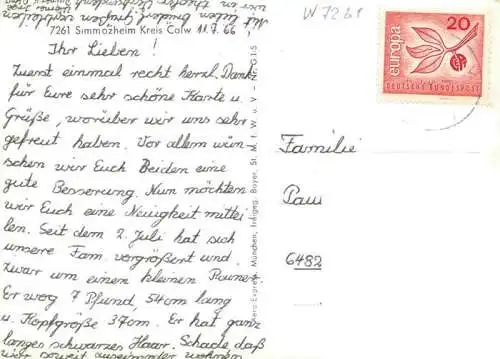 Mit vielen
7261 Simmozheim Kreis Calw 11.7.66
Ihr Lieben!
Zuerst einmal recht herzl. Dank
für Eure sehr schöne Karte u.
Grüße, worüber wir uns sehr
gefreut haben. Vor allem wün-
schen wir Euch Beiden eine
gute Besserung. Nun möchten
wir Euch eine Neuigkeit mittei
len. Seit dem 2. Juli hat sich
unsere Fam. vergrößert und
zwar um einen kleinen Rainer
Er wog 7 Pfund, 54cm lang
u. Kopfgröße 37cm. Er hat ganz
langes schwarzes Haar. Schade, daß
wir soweit auseinander wohnen
Aero-Express, München, Freigeg. Bayer. St. M. f. W. u. V - Nr. G
W 7261
20
europa
CEPT
DEUTSCHE BUNDESPOST
Familie
Paul
6482